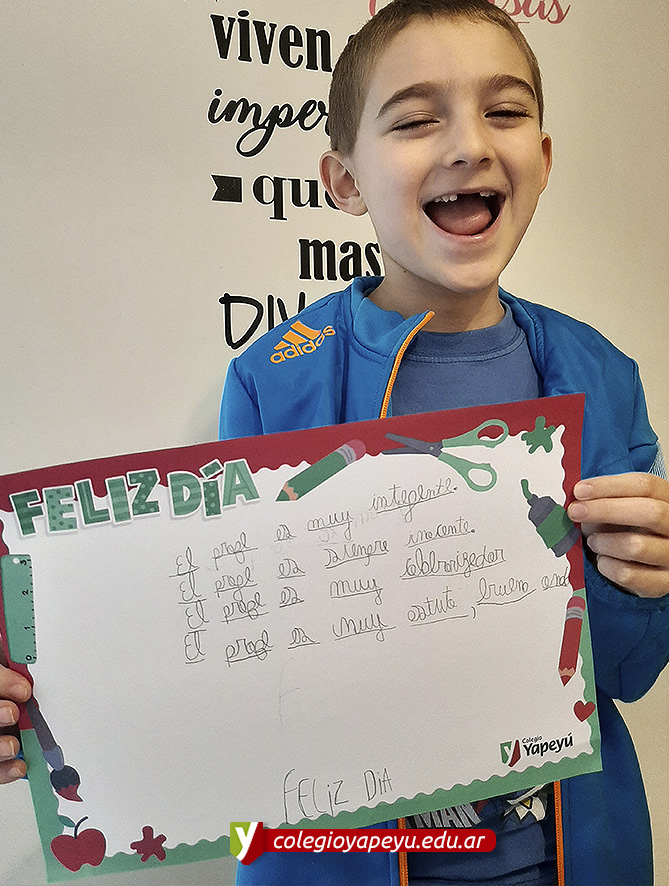 viven
imper
que
mas
DIV
adidas
FELIZ DÍA
El profe es muy integente.
El profe es inocente.
El profe es muy
El profe es muy astuto, bueno
Colegio
Yapeyú
FELIZ DIA
MAN
colegioyapeyu.edu.ar